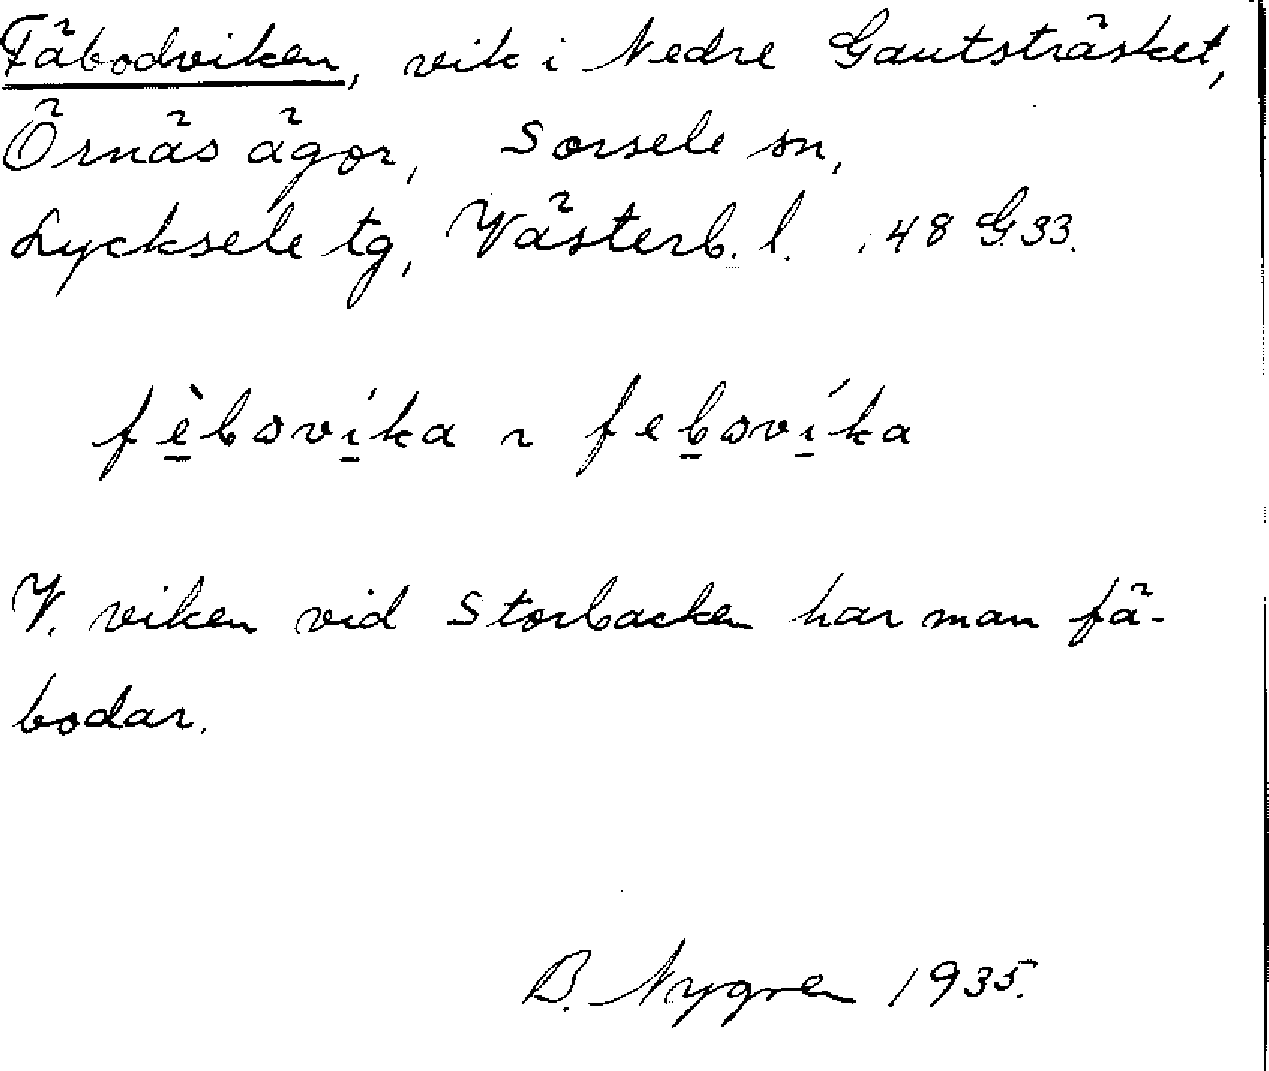 Fäbodviken, vik i Nedre Gautsträsket,
Örnäs ägor, Sorsele sn,
Lycksele tg, Västerb. l. 48 G 33.
fè̱boví̱ka ~ feḇoví̱ka
V. viken vid Storbacken har man fä-
bodar.
B. Nygren 1935.